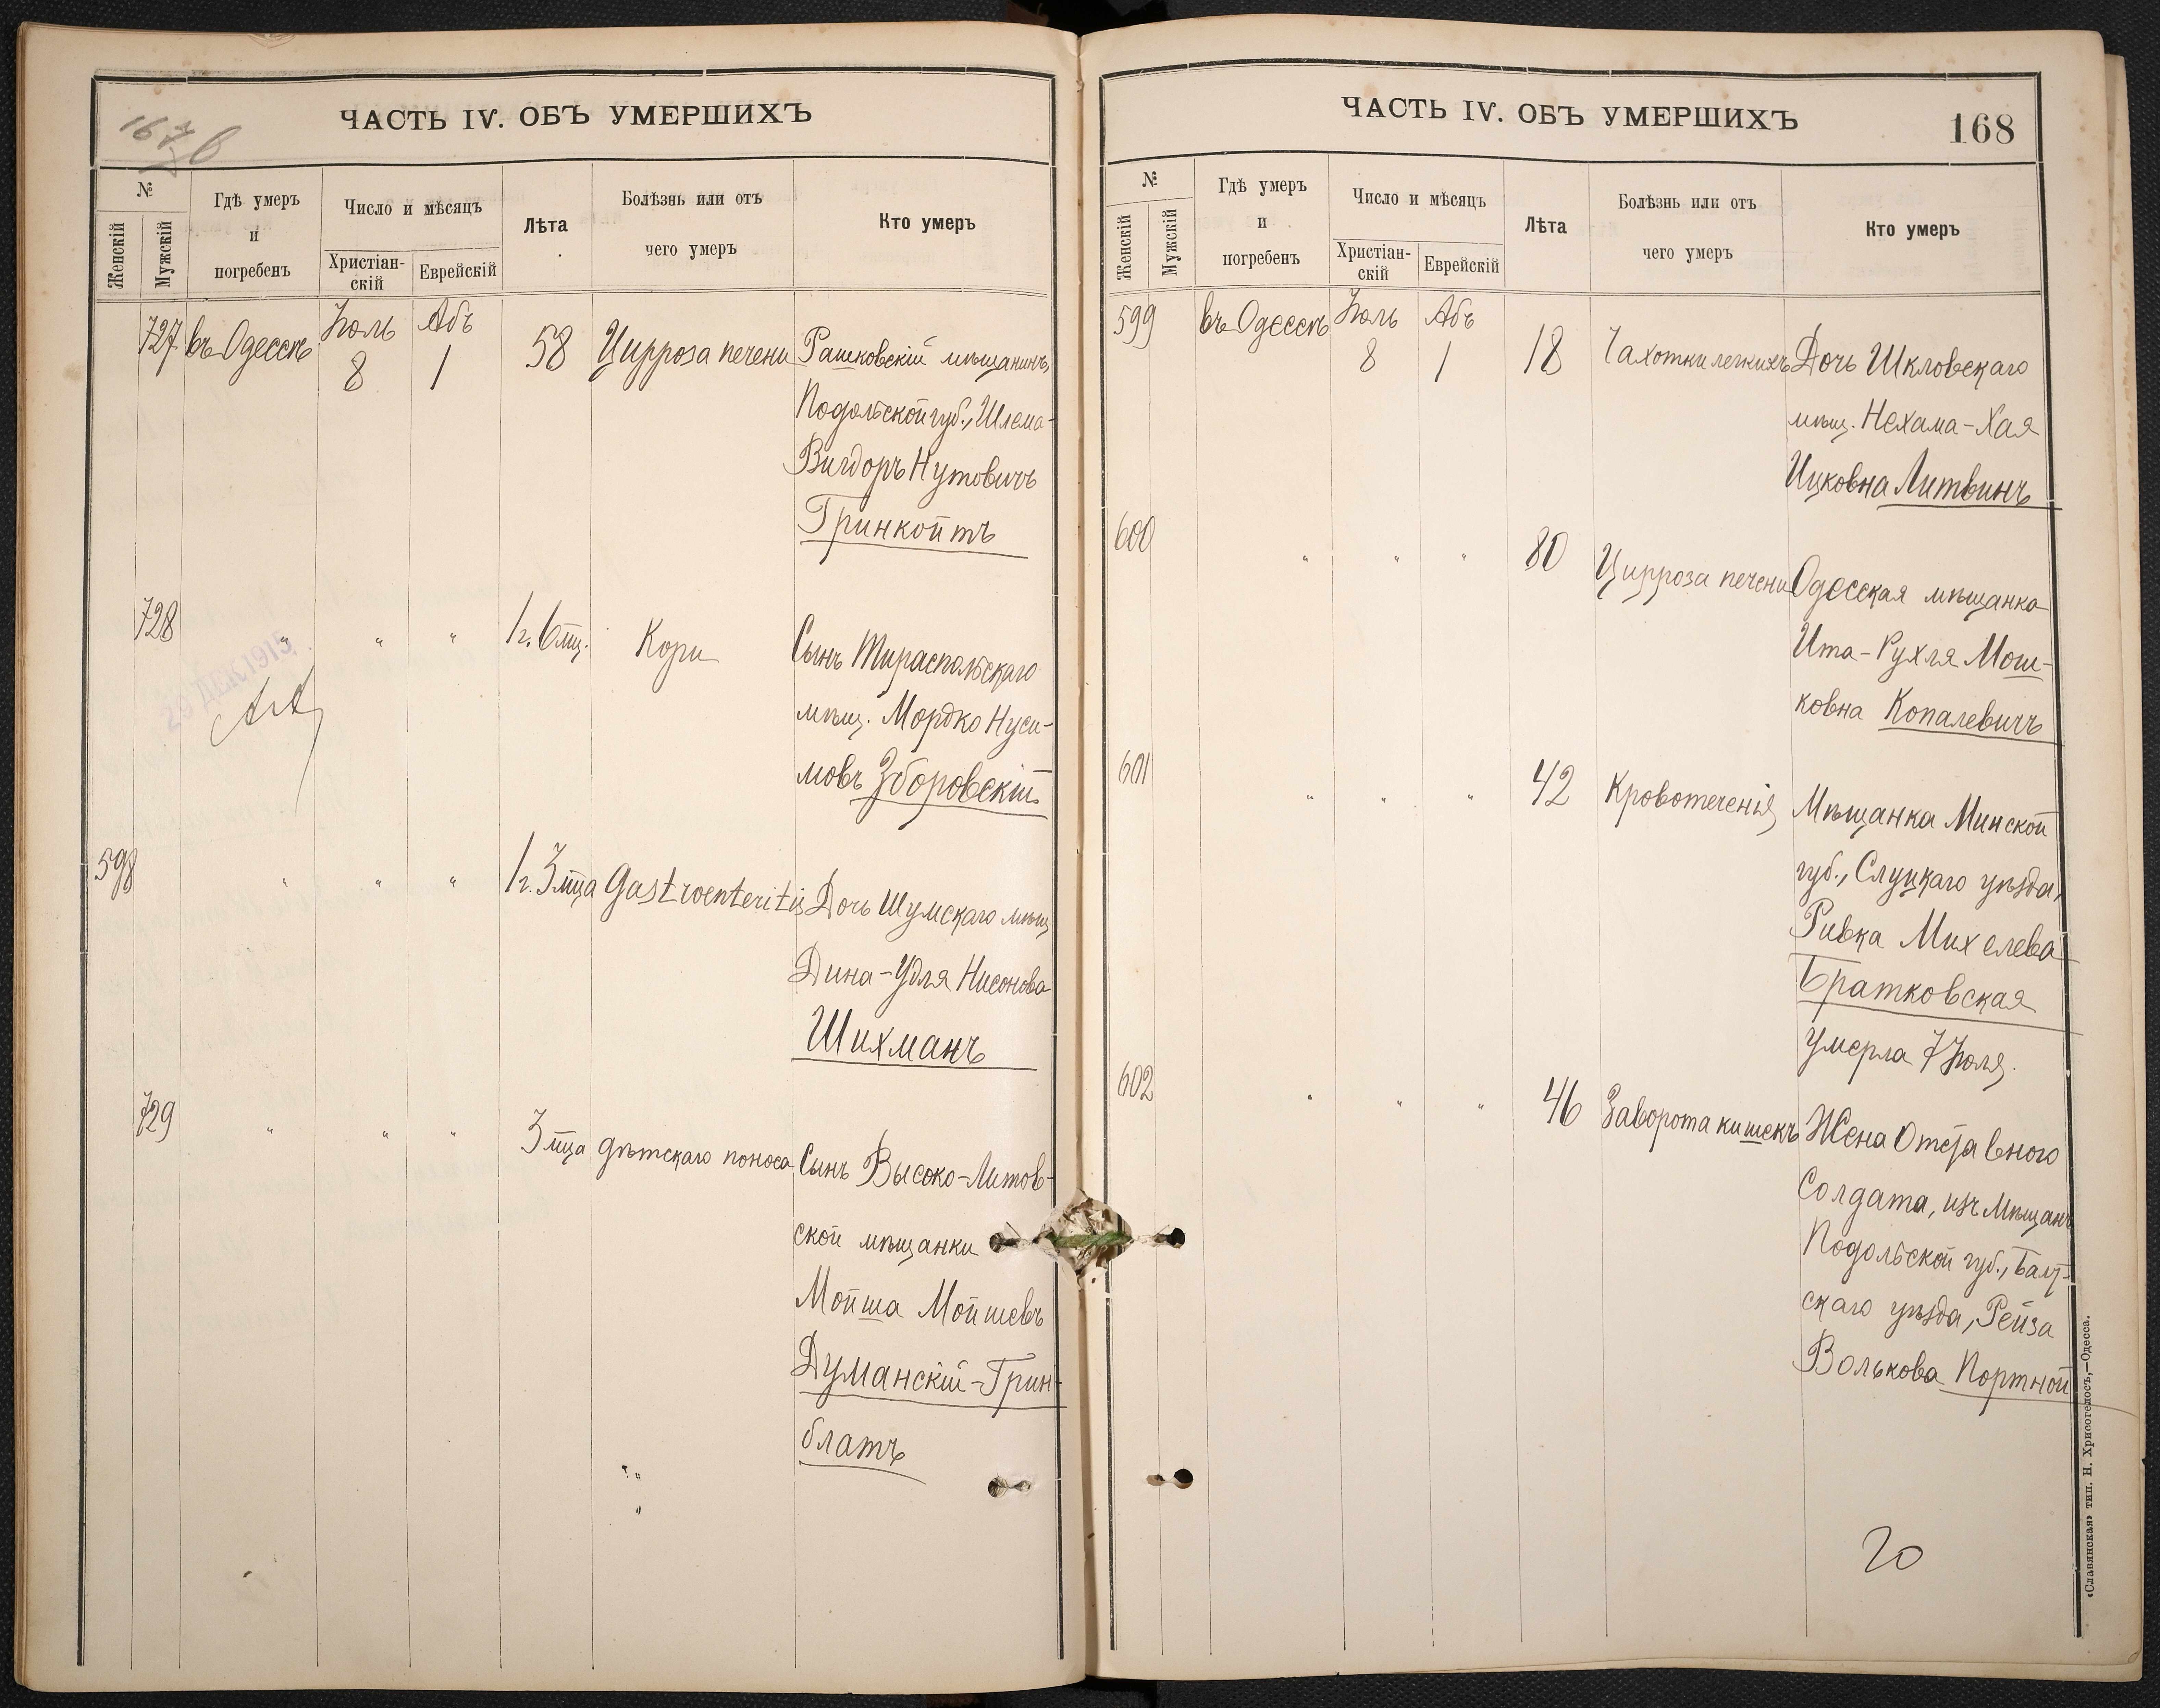 ЧАСТЬ IV. ОБЪ УМЕРШИХЪ
№
Женскій
Мужскій
Гдѣ умеръ
и
погребенъ
Число и мѣсяцъ
Христіан-
скій
Еврейскій
Лѣта
Болѣзнь или отъ
чего умеръ
Кто умеръ
727 въ Одессѣ Іюль 8 Абъ 1 58 Цирроза печени Рашковскій мѣщанинъ,
Подольской губ., Шлема-
Вигдоръ Нутовичъ
Гринкойтъ
728 " " " 1 г. 6 мц. Кори Сынъ Тираспольскаго
мѣщ. Мордко Нуси-
мовъ Зборовскій
29 ДЕК 1915
598 " " " 1 г. 3 мца Gastroenteritis Дочь Шумскаго мѣщ
Дина-Удля Нисонова
Шихманъ
729 " " " 3 мца дѣтскаго поноса Сынъ Высоко-Литов-
ской мѣщанки
Мойша Мойшевъ
Думанскій-Грин-
блатъ
ЧАСТЬ IV. ОБЪ УМЕРШИХЪ
168
№
Женскій
Мужскій
Гдѣ умеръ
и
погребенъ
Число и мѣсяцъ
Христіан-
скій
Еврейскій
Лѣта
Болѣзнь или отъ
чего умеръ
Кто умеръ
599 въ Одессѣ Іюль 8 Абъ 1 18 Чахотки легкихъ Дочь Шкловскаго
мѣщ. Нехама-Хая
Ицковна Литвинъ
600 " " " 80 Цирроза печени Одесская мѣщанка
Ита-Рухля Мош-
ковна Копалевичъ
601 " " " 42 Кровотеченія Мѣщанка Минской
губ., Слуцкаго уѣзда,
Ривка Михелева
Братковская
умерла 7 Іюля.
602 " " " 46 Заворота кишекъ Жена Отставного
Солдата, изъ мѣщанъ
Подольской губ., Балт-
скаго уѣзда, Рейза
Волькова Портной
20
«Славянская» тип. Н. Хрисогелосъ,—Одесса.